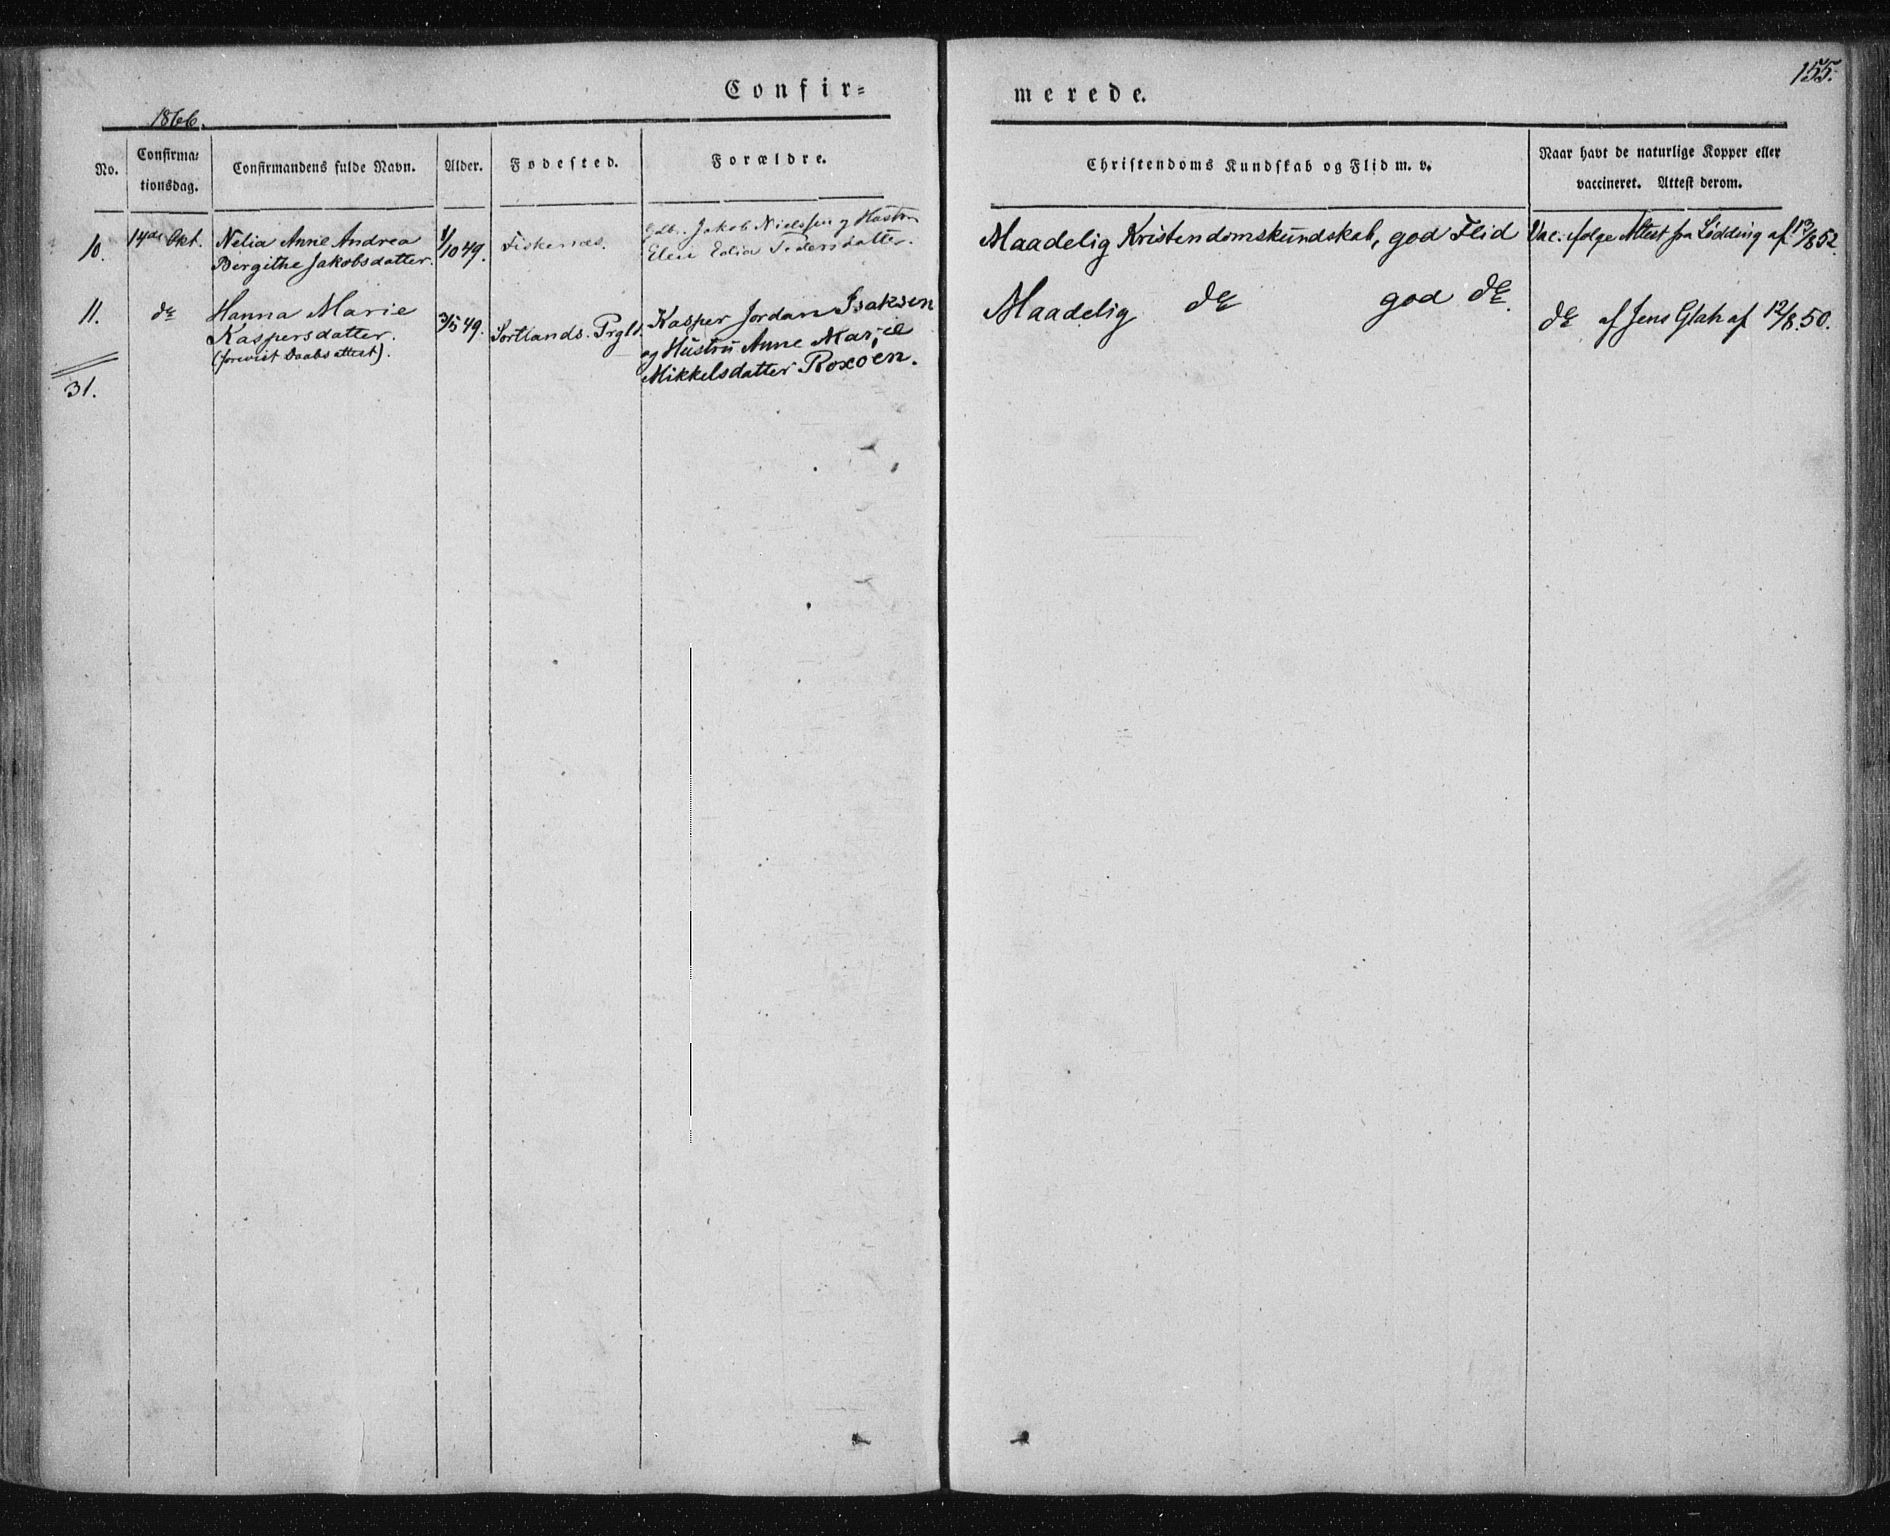 155.
Confir=
merede.
1866.
No.
Confirma=
tionsdag.
Confirmandens fulde Navn.
Alder.
Fødested.
Forældre.
Christendoms Kundskab og Flid m. v.
Naar havt de naturlige Kopper eller
vaccineret. Attest derom.
10.
14de Okt.
Nelia Anne Andrea
Bergithe Jakobsdatter.
1/10 49.
Fiskenæs.
Jakob Nielssen og Hustru
Elen Edia Pedersdatter.
Maadelig Kristendomskundskab, god Flid
Vac. ifølge Attest fra Lødding af 13/8 52.
11.
do
Hanna Marie
Kaspersdatter.
(forevist Daabsattest).
3/5 49.
Sortlands Prgld.
Kasper Jordan Isaksen
og Hustru Anne Marie
Mikkelsdatter Roxøen.
Maadelig do god do.
do af Jens Glah af 12/8.50.
31.